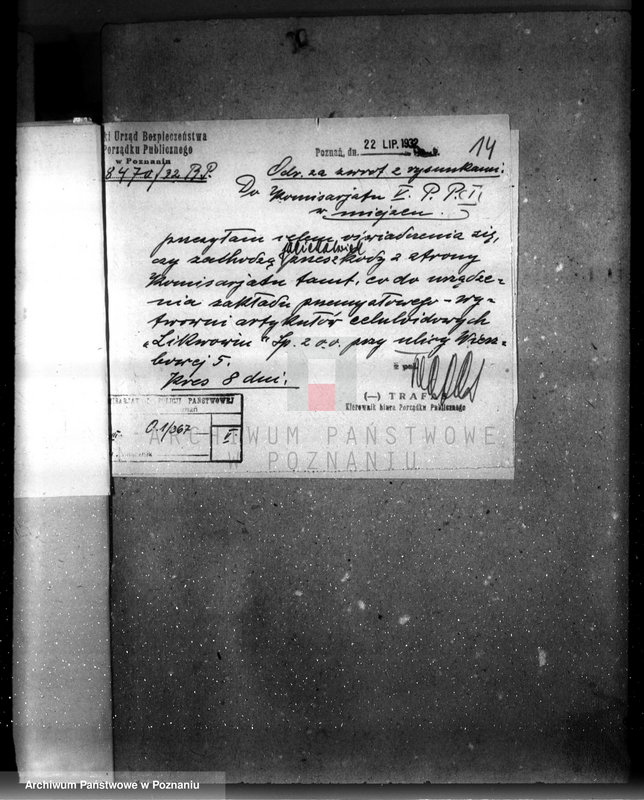 ki Urząd Bezpieczeństwa
Porządku Publicznego
w Poznaniu
8470/32 B.P.
Poznań, dn. 22 LIP. 1932
14
Odr. za zwrot z rysunkami.
Do
Komisarjatu V. P. P.
w miejscu.
przesyłam celem oświadczenia się,
czy zachodzą jakiekolwiek przeszkody z strony
Komisarjatu tamt. co do urządze-
nia zakładu przemysłowego - wy-
twórni artykułów celuloidowych
"Likwowin" Sp. z o.o. przy ulicy Wierz-
bowej 5.
Kres 8 dni.
z pol.
(—) TRAFAS
Kierownik biura Porządku Publicznego
POLICJI PAŃSTWOWEJ
0.1/367
ARCHIWUM PAŃSTWOWE
W POZNANIU
Archiwum Państwowe w Poznaniu